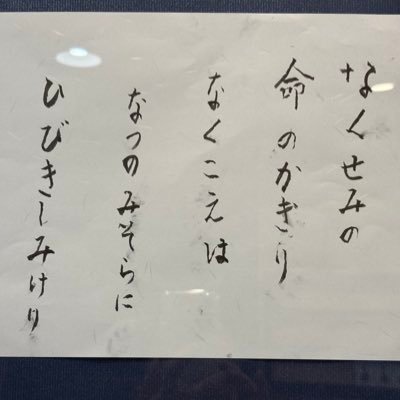 なくせみの
命のかぎり
なくこえは
なつのみそらに
ひびきしみけり